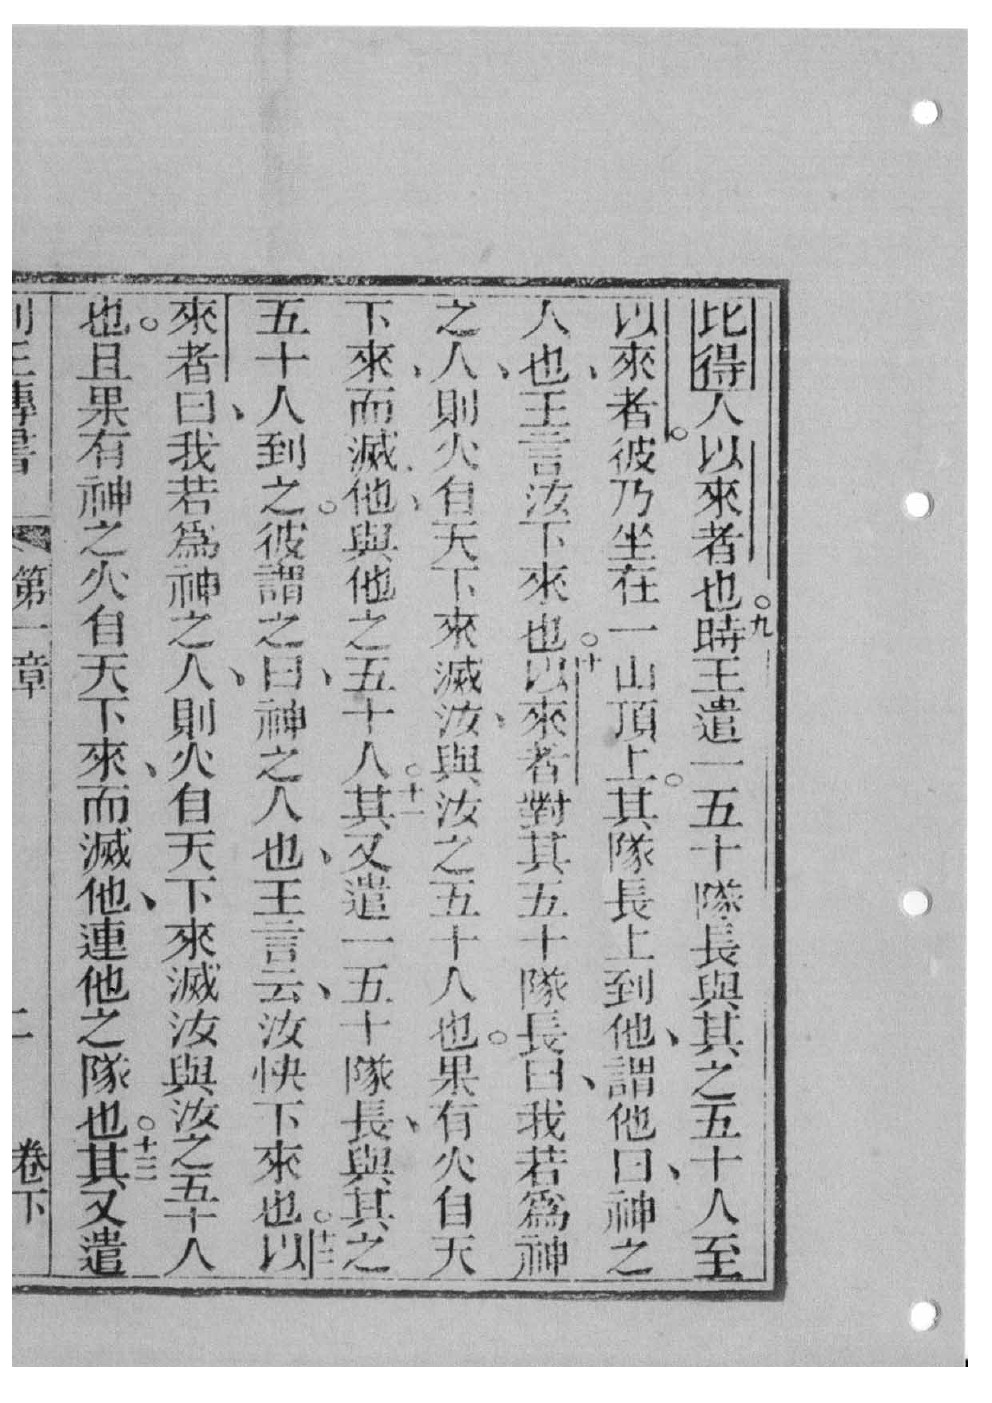 比得人以來者也。九時王遣一五十隊長與其之五十人至
以來者。彼乃坐在一山頂上。其隊長上到他、謂他曰、神之
人也、王言汝下來也。十以來者對其五十隊長曰、我若為神
之人、則火自天下來滅汝、與汝之五十人也。果有火自天
下來、而滅他、與他之五十人。十一其又遣一五十隊長、與其之
五十人到之。彼謂之曰、神之人也、王言云、汝快下來也。十二以
來者曰、我若為神之人、則火自天下來滅汝與汝之五十人
也。且果有神之火自天下來、而滅他、連他之隊也。十三其又遣
列王傳書 第一章 二 卷下